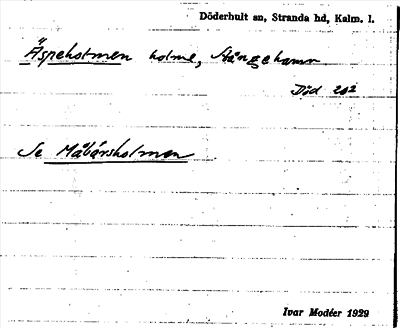 Döderhult sn, Stranda hd, Kalm. l.
Äspeholmen holme, Stångehamn
Död 202
Se Måbärsholmen
Ivar Modéer 1929